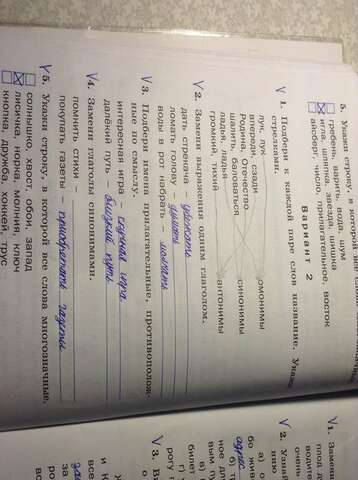 5. Укажи строку, в которой все
гребень, варить, вода, шум
игла, шляпка, звезда, шишка
айсберг, число, прилагательное, восток
Вариант 2
1. Подбери к каждой паре слов название. Укажи
стрелками.
луч, лук
впереди, сзади
Родина, Отечество
шалить, баловаться
ладья, ладья
громкий, тихий
омонимы
синонимы
антонимы
2. Замени выражения одним глаголом.
дать стрекача – убежать
ломать голову – думать
воды в рот набрать – молчать
3. Подбери имена прилагательные, противополож-
ные по смыслу.
интересная игра – скучная игра
далёкий путь – близкий путь
4. Замени глаголы синонимами.
помнить стихи
покупать газеты – приобретать газеты
5. Укажи строку, в которой все слова многозначные.
солнышко, хвост, обои, запад
лисичка, норка, молния, ключ
кнопка, дружба, хоккей, трус
1. Замени
плод д
водите
очень
2. Узнай
нию
а) о
бо жив
адрес
б) т
вым п
ное дл
в)
билет
г)
рогу
3. В
о